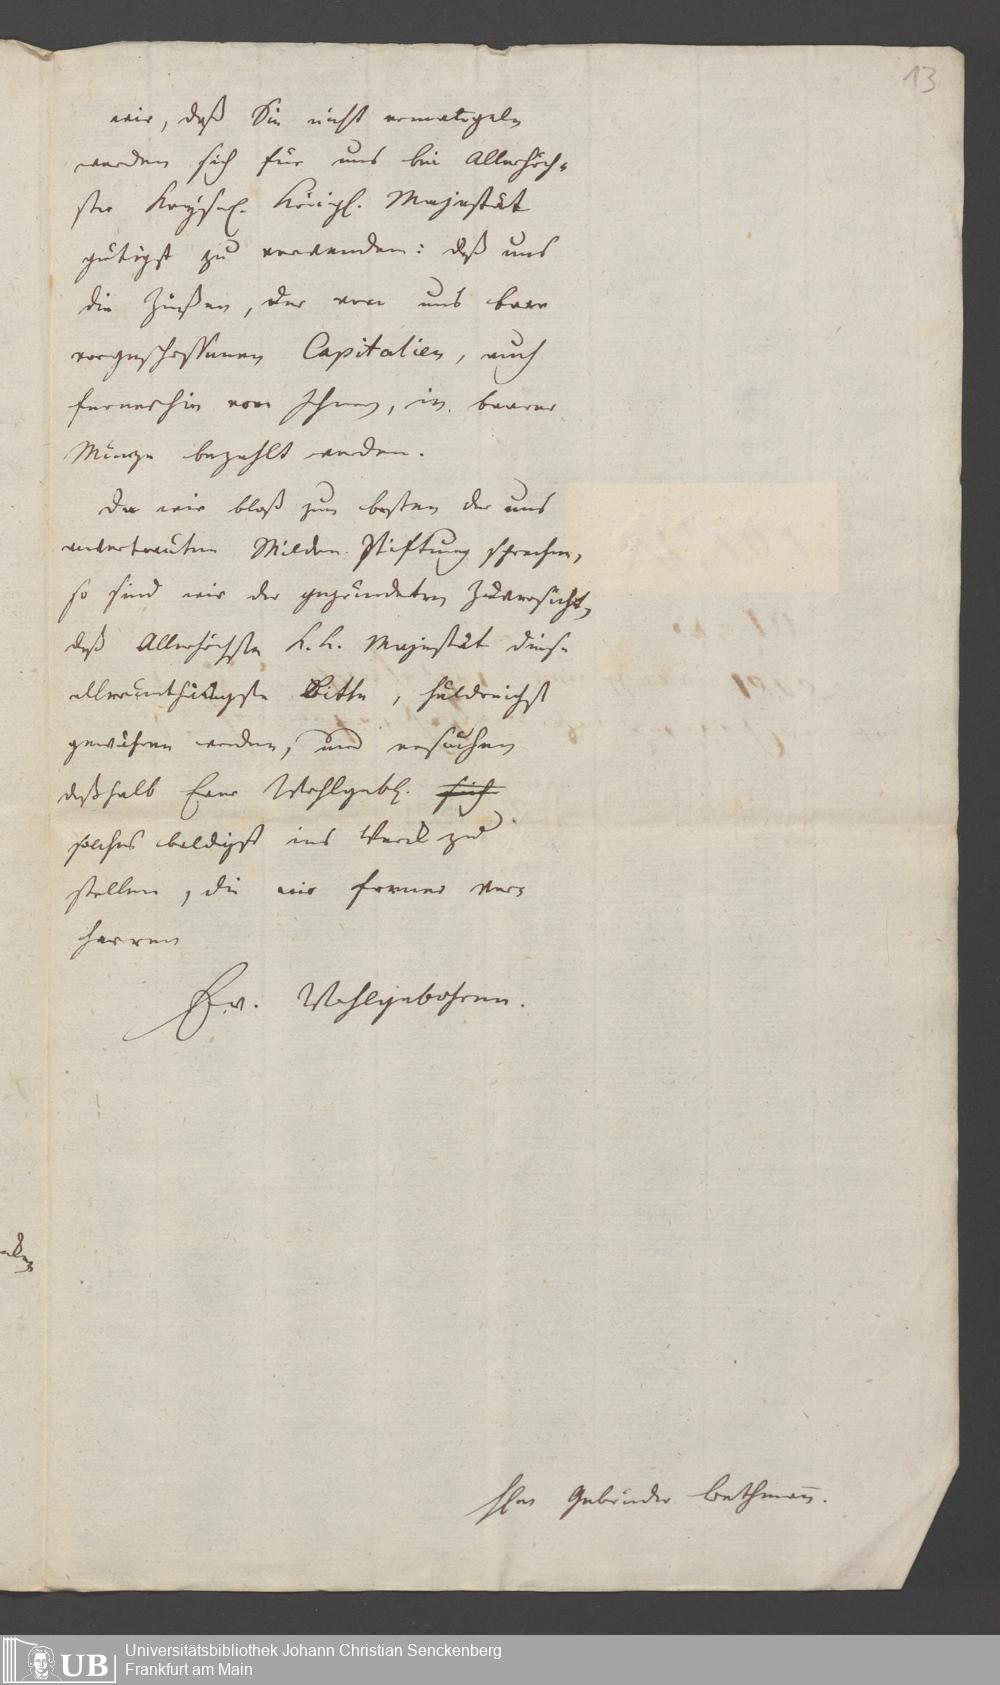 13
wir, daß Sie nicht ermangeln
werden sich für uns bei Allerhöch-
ster Kaysrl. Königl. Majestät
gütigst zu verwenden: daß uns
die Zinßen, der von uns baar
vorgeschossenen Capitalien, auch
fernerhin von Ihnen, in baarer
Münze bezahlt werden.
Da wir bloß zum besten der uns
anvertrauten Milden Stiftung sprechen,
so sind wir der gegründeten Zuversicht,
daß Allerhöchste K. K. Majestät diese
allerunthänigste Bitte, huldreichst
gewähren werden, und ersuchen
deßhalb Euer Wohlgebl. sich
solches baldigst ins Werck zu
stellen, die wir ferner ver-
harren
Ew. Wohlgebohren.
Gebrüder Bethmañ.
UB
Universitätsbibliothek Johann Christian Senckenberg
Frankfurt am Main